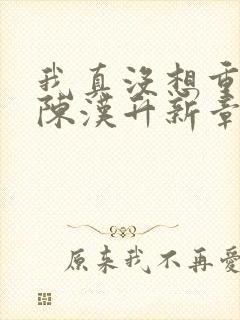 我真没想重
陈汉升新章
原来我不再爱